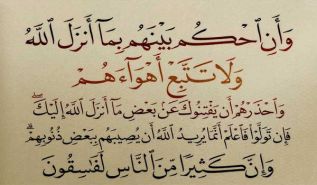 وَأَنِ ٱحْكُم بَيْنَهُم بِمَآ أَنزَلَ ٱللَّهُ
وَلَا تَتَّبِعْ أَهْوَآءَهُمْ
وَٱحْذَرْهُمْ أَن يَفْتِنُوكَ عَنۢ بَعْضِ مَآ أَنزَلَ ٱللَّهُ إِلَيْكَ ۖ
فَإِن تَوَلَّوْا۟ فَٱعْلَمْ أَنَّمَا يُرِيدُ ٱللَّهُ أَن يُصِيبَهُم بِبَعْضِ ذُنُوبِهِمْ ۗ
وَإِنَّ كَثِيرًا مِّنَ ٱلنَّاسِ لَفَـٰسِقُونَ